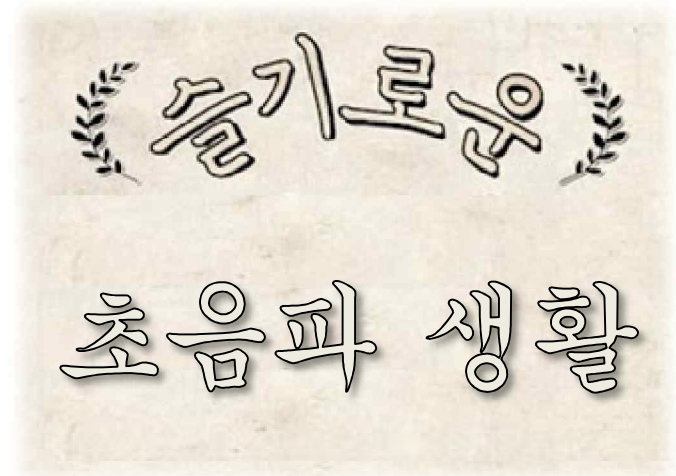 슬기로운
초음파 생활